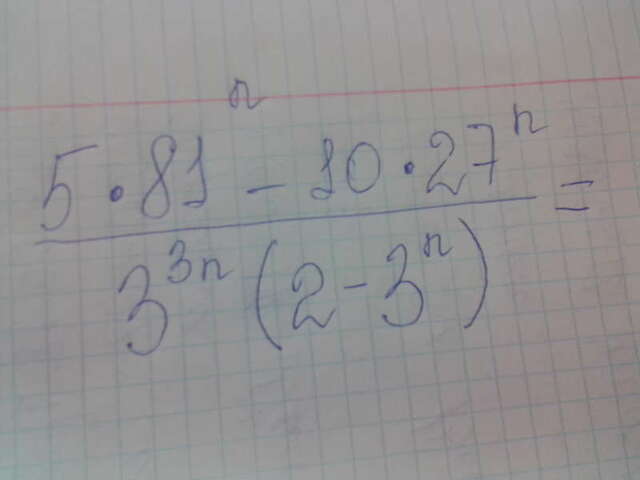 5 · 81ⁿ - 10 · 27ⁿ =
3³ⁿ (2 - 3ⁿ)